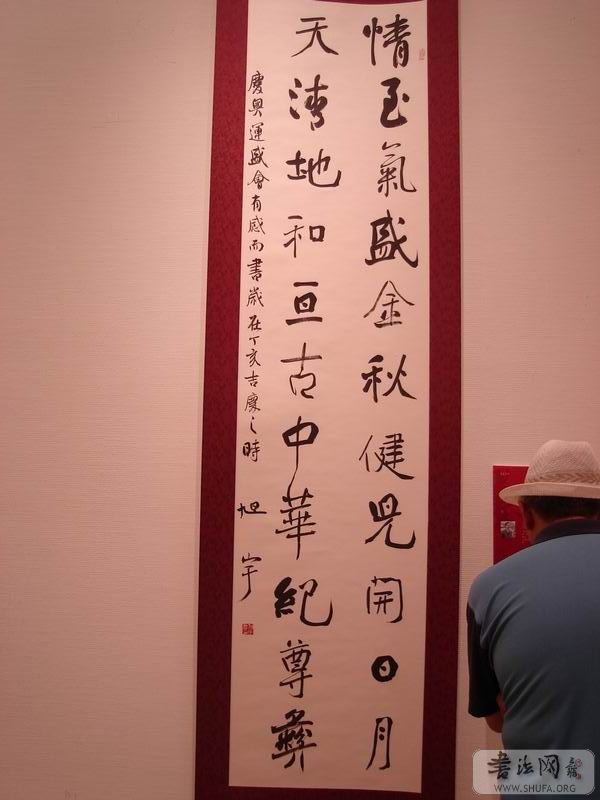 情至氣盛金秋健兒開日月
天清地和亘古中華紀尊彝
慶奧運盛會有感而書歲在丁亥吉慶之時
旭宇
書法网
WWW.SHUFA.ORG